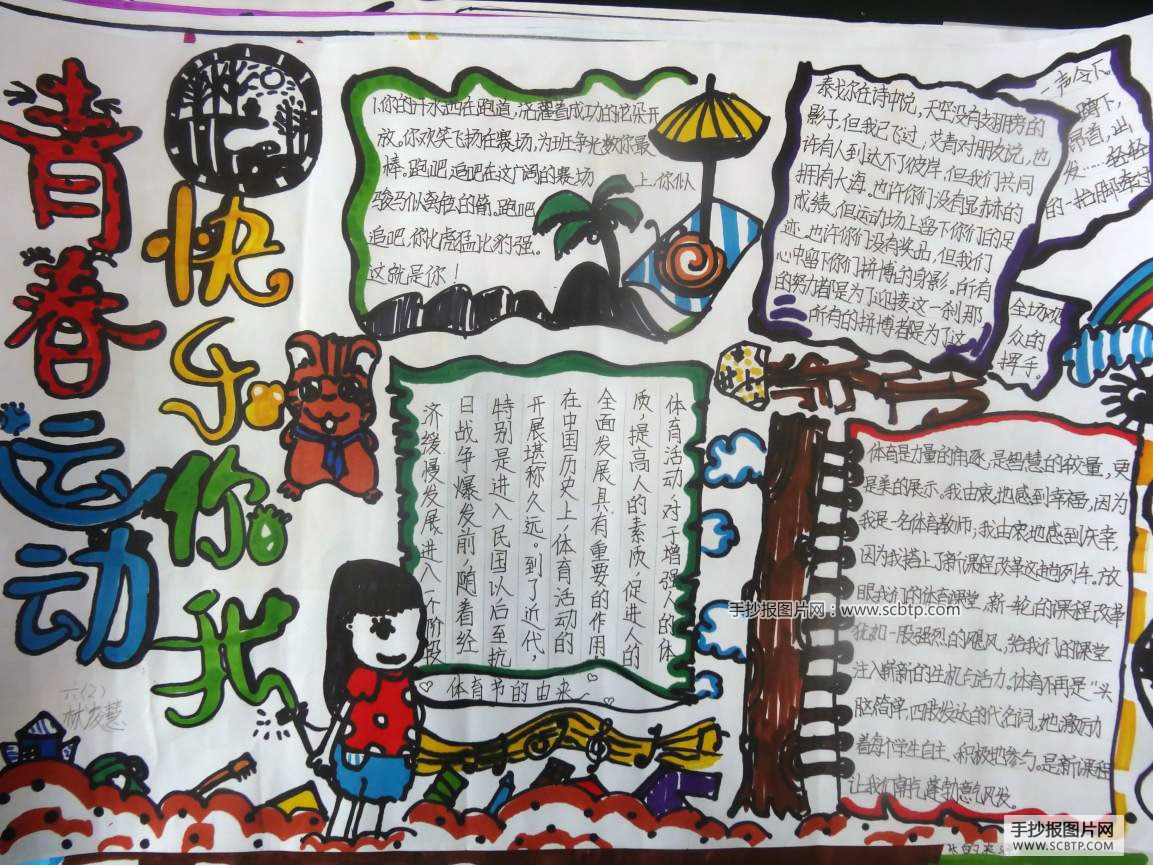 青春运动
快乐你我
六(2)
林友慧
1.你的汗水洒在跑道,浇灌着成功的花朵开
放。你欢笑飞扬在赛场,为班争光数你最
棒。跑吧,追吧在这广阔的赛场上,你似
骏马似离弦的箭。跑吧
追吧,你比虎猛比豹强。
这就是你!
泰戈尔在诗中说,天空没有翅膀的
影子,但我已飞过,艾青对朋友说,也
许有人到达不了彼岸,但我们共同
拥有大海。也许你们没有显赫的
成绩,但运动场上留下你们的足
迹。也许你们没有奖品,但我们
心中留下你们拼搏的身影。所有
的努力都是为了迎接这一刹那
所有的拼博者是为了这
一声令下。
蹲下,
昂首,出
发……轻轻
的一抬脚牵动
全场观
众的
挥手。
体育活动,对于增强人的体
质,提高人的素质,促进人的
全面发展具有重要的作用
在中国历史上,体育活动的
开展堪称久远。到了近代,
特别是进入民国以后至抗
日战争爆发前,随着经
济缓慢发展进入一个阶段
体育节的由来
体育是力量的角逐,是智慧的较量,更
是美的展示。我由衷地感到幸福,因为
我是一名体育教师;我由衷地感到庆幸,
因为我搭上了新课程改革这趟列车。放
眼我们的体育课堂,新一轮的课程改革
犹如一股强烈的飓风,给我们的课堂
注入崭新的生机与活力。体育不再是“头
脑简单,四肢发达的代名词,她激励
着每个学生自主、积极地参与。是新课程
让我们意气风发。
手抄报图片网:www.scbtp.com
手抄报图片网
WWW.SCBTP.COM